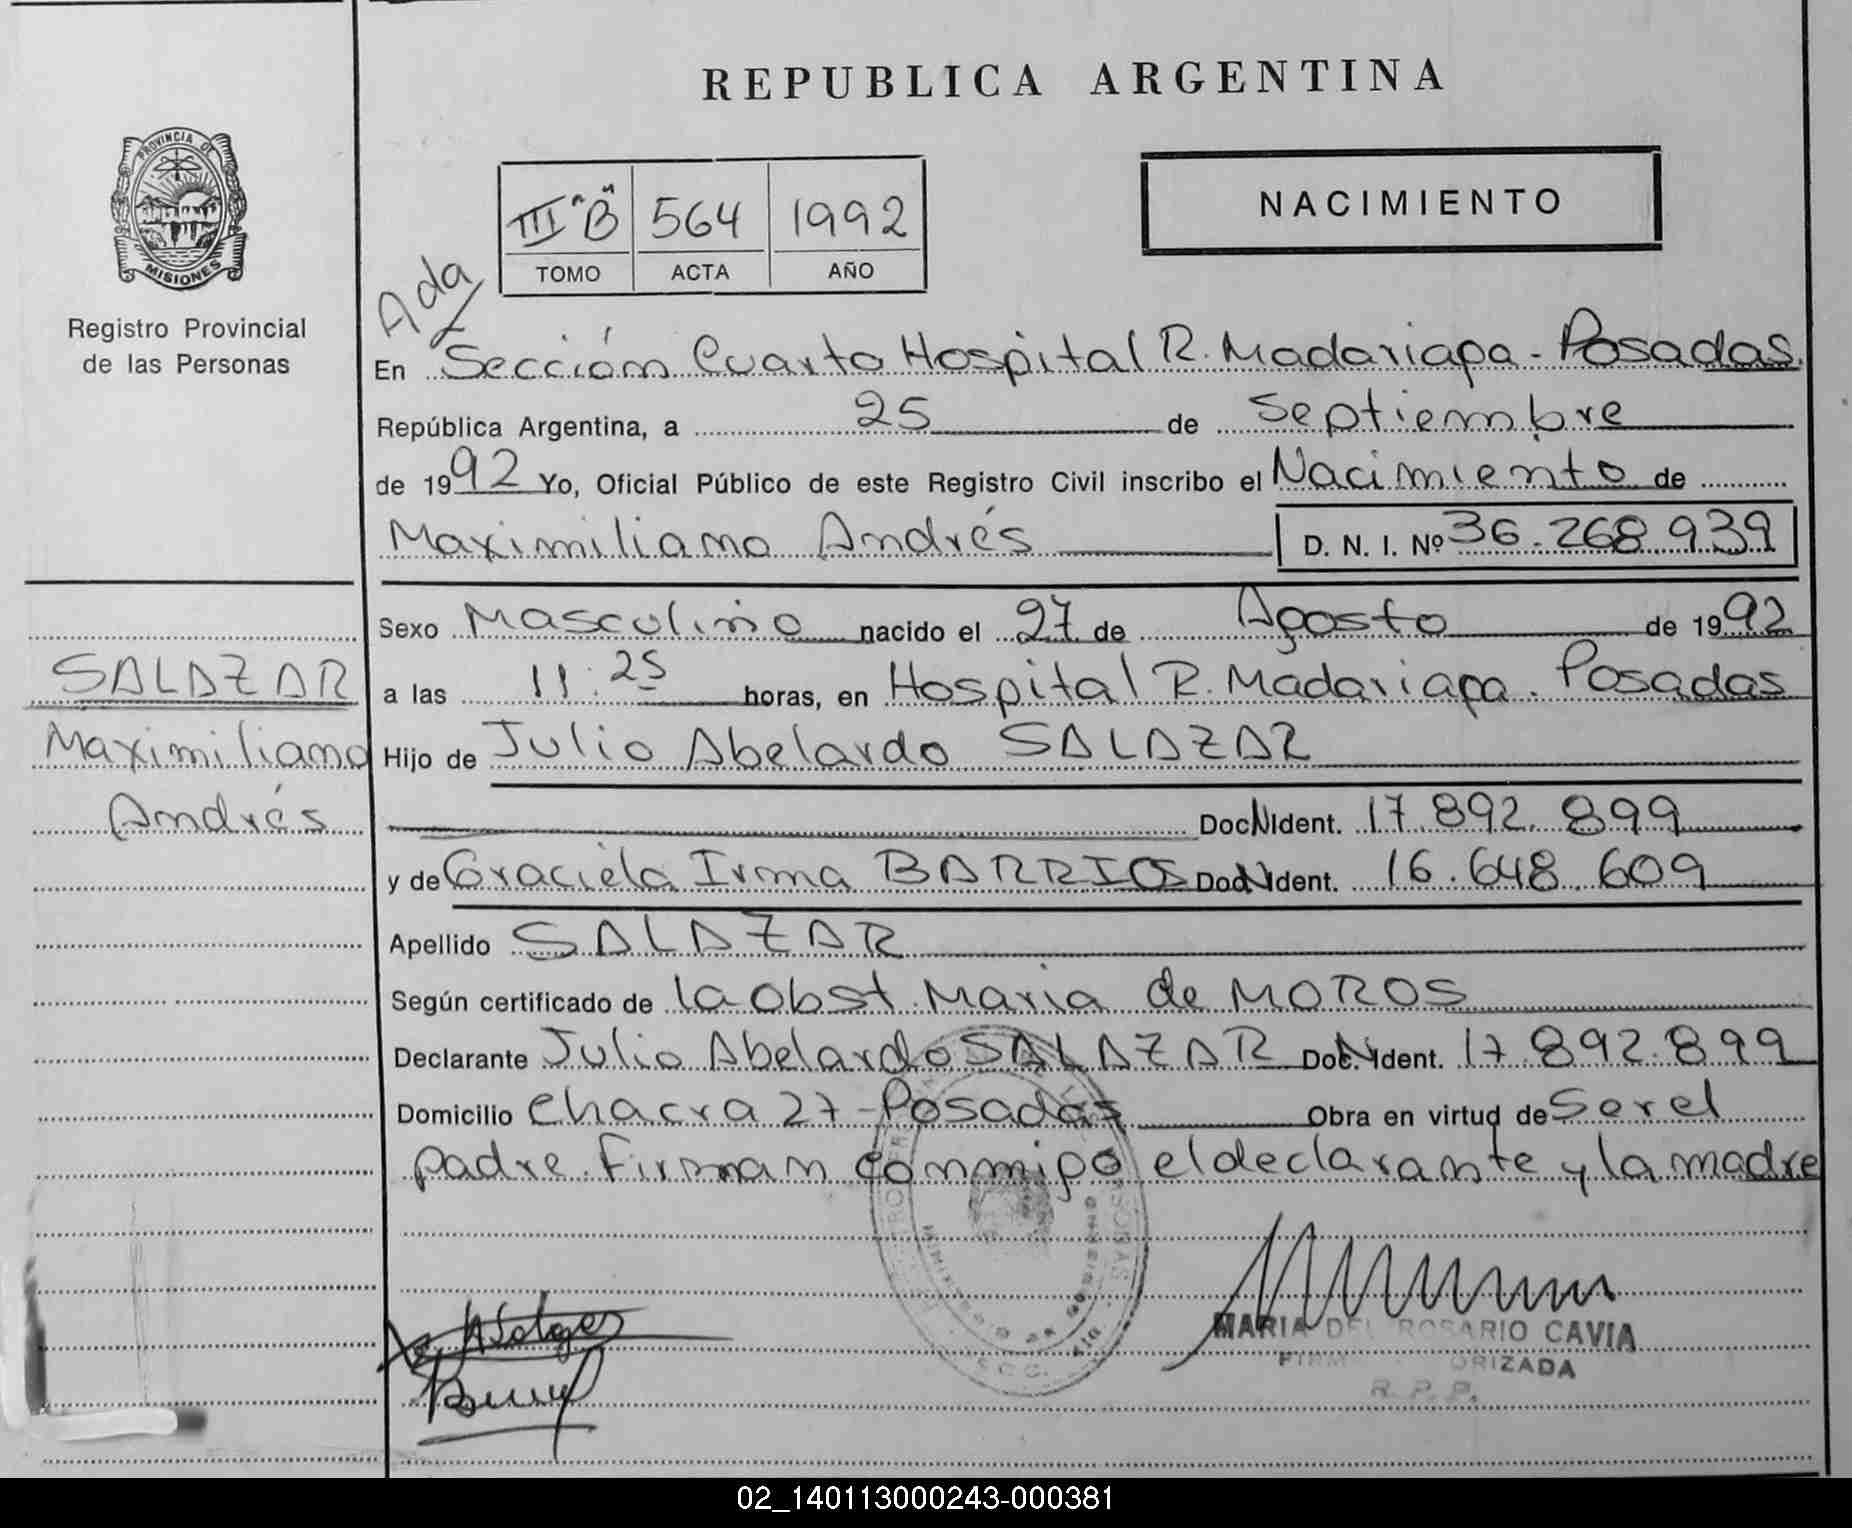 REPUBLICA ARGENTINA
PROVINCIA DE
MISIONES
Registro Provincial
de las Personas
NACIMIENTO
III "B" 564 1992
TOMO ACTA AÑO
Ada
En Sección Cuarta Hospital R. Madariaga - Posadas.
República Argentina, a 25 de Septiembre
de 1992 Yo, Oficial Público de este Registro Civil inscribo el Nacimiento de
Maximiliano Andrés D. N. I. Nº 36.268.939
Sexo Masculino nacido el 27 de Agosto de 1992
a las 11:25 horas, en Hospital R. Madariaga. Posadas
Hijo de Julio Abelardo SALAZAR
Doc N Ident. 17.892.899
y de Graciela Irma BARRIOS Doc N Ident. 16.648.609
Apellido SALAZAR
Según certificado de la Obst. Maria de MOROS
Declarante Julio Abelardo SALAZAR Doc. N Ident. 17.892.899
Domicilio Chacra 27 - Posadas Obra en virtud de Ser el
padre. Firman conmigo el declarante y la madre
SALAZAR
Maximiliano
Andrés
MARIA DEL ROSARIO CAVIA
R. P. P.
02_140113000243-000381